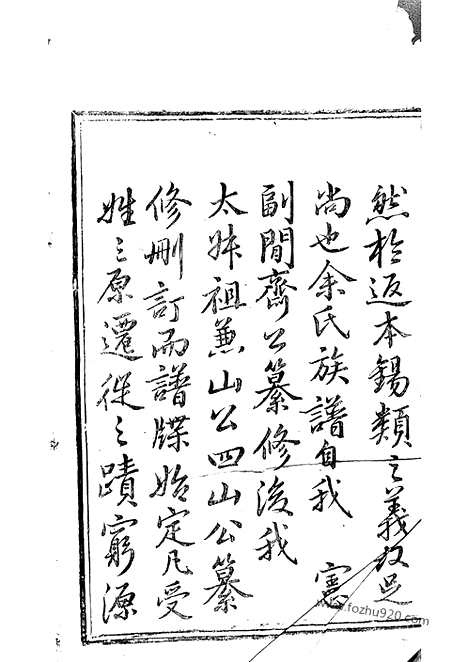 然於返本錫類之義攸
尚也余氏族譜自我　憲
副閒齋公纂修後我
太叔祖蕙山公四山公纂
修刪訂而譜牒始定凡受
姓之原遷徙之蹟窮源
www.fozhu920.com